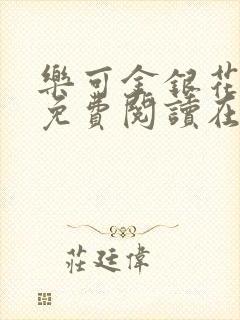 樂可金銀花
免費閱讀在
莊廷偉